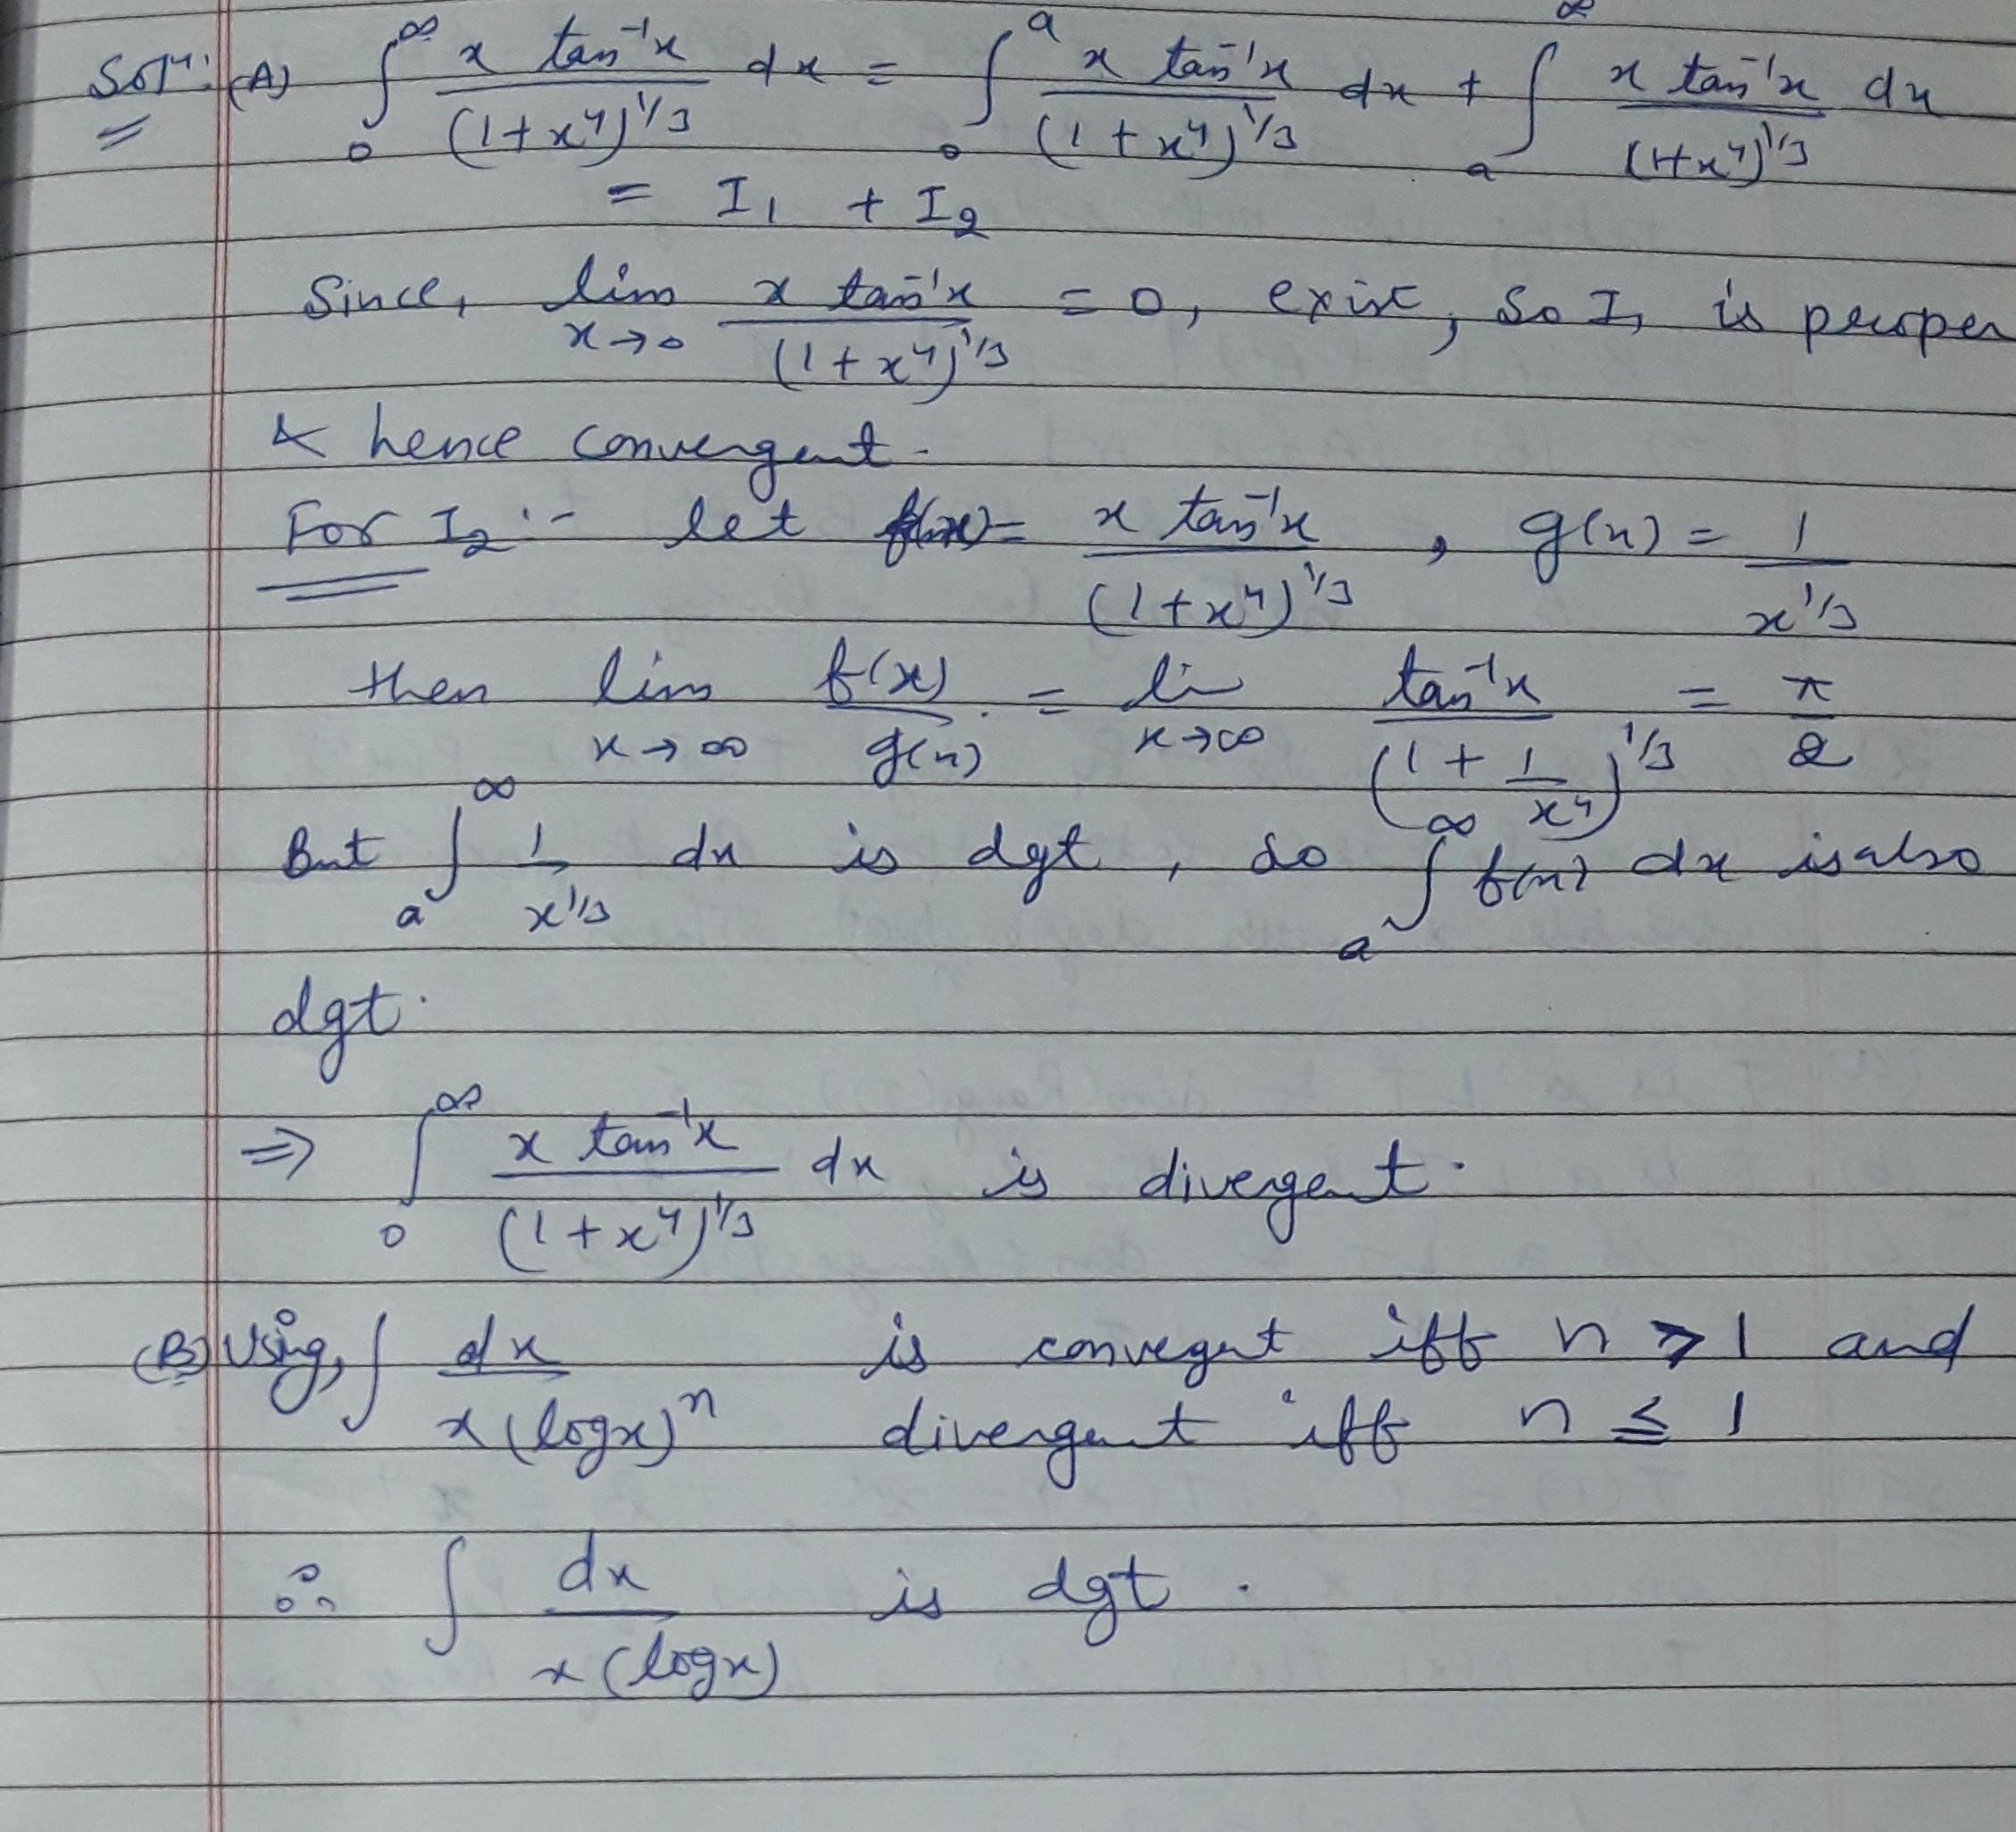 Solⁿ: (A) ∫₀^∞ x tan⁻¹x / (1+x⁴)^{1/3} dx = ∫₀^a x tan⁻¹x / (1+x⁴)^{1/3} dx + ∫ₐ^∞ x tan⁻¹x / (1+x⁴)^{1/3} dx
= I₁ + I₂
Since, lim_{x→0} x tan⁻¹x / (1+x⁴)^{1/3} = 0, exist, so I₁ is proper
& hence convergent.
For I₂ :- let f(x) = x tan⁻¹x / (1+x⁴)^{1/3} , g(x) = 1 / x^{1/3}
then lim_{x→∞} f(x) / g(x) = li_{x→∞} tan⁻¹x / (1 + 1/x⁴)^{1/3} = π/2
But ∫ₐ^∞ 1 / x^{1/3} dx is dgt, so ∫ₐ^∞ f(x) dx is also
dgt.
⇒ ∫₀^∞ x tan⁻¹x / (1+x⁴)^{1/3} dx is divergent.
(B) Using, ∫ dx / x(logx)ⁿ is convegent iff n > 1 and
divergent iff n ≤ 1
∴ ∫ dx / x(logx) is dgt.